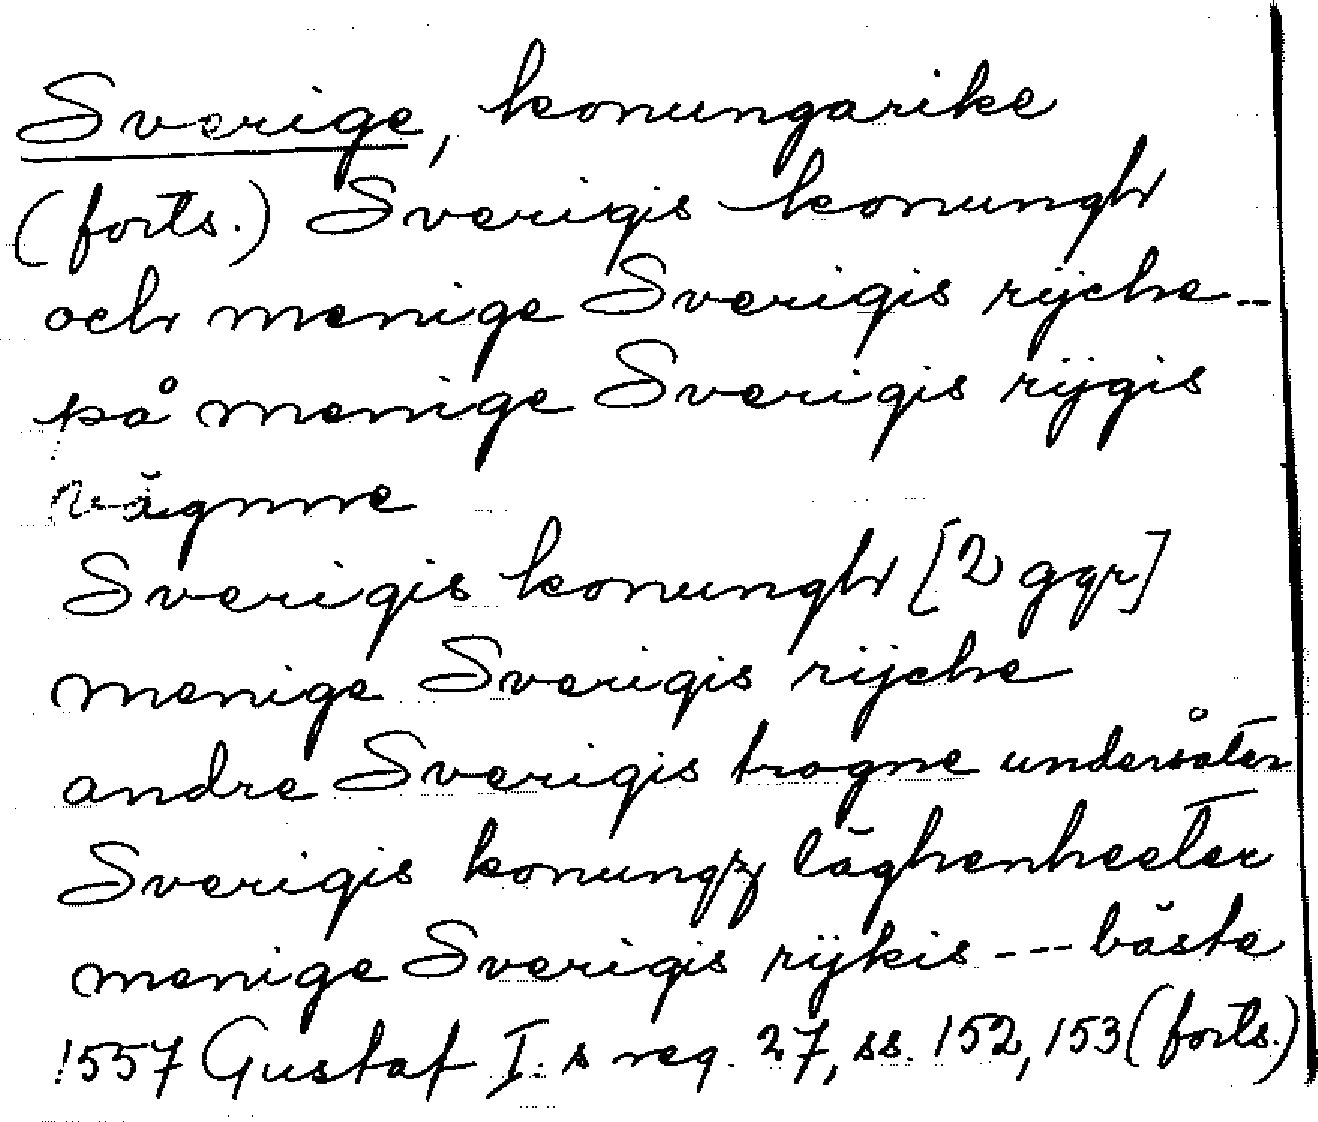 Sverige, konungarike
(forts.) Sverigis konungh
och menige Sverigis rijche --
på menige Sverigis rijgis
vägnne
Sverigis konungh [2 ggr]
menige Sverigis rijche
andre Sverigis trogne undersåter
Sverigis konungz läghenheeter
menige Sverigis rijkis --- bäste
1557 Gustaf I:s reg. 27, ss. 152, 153 (forts.)